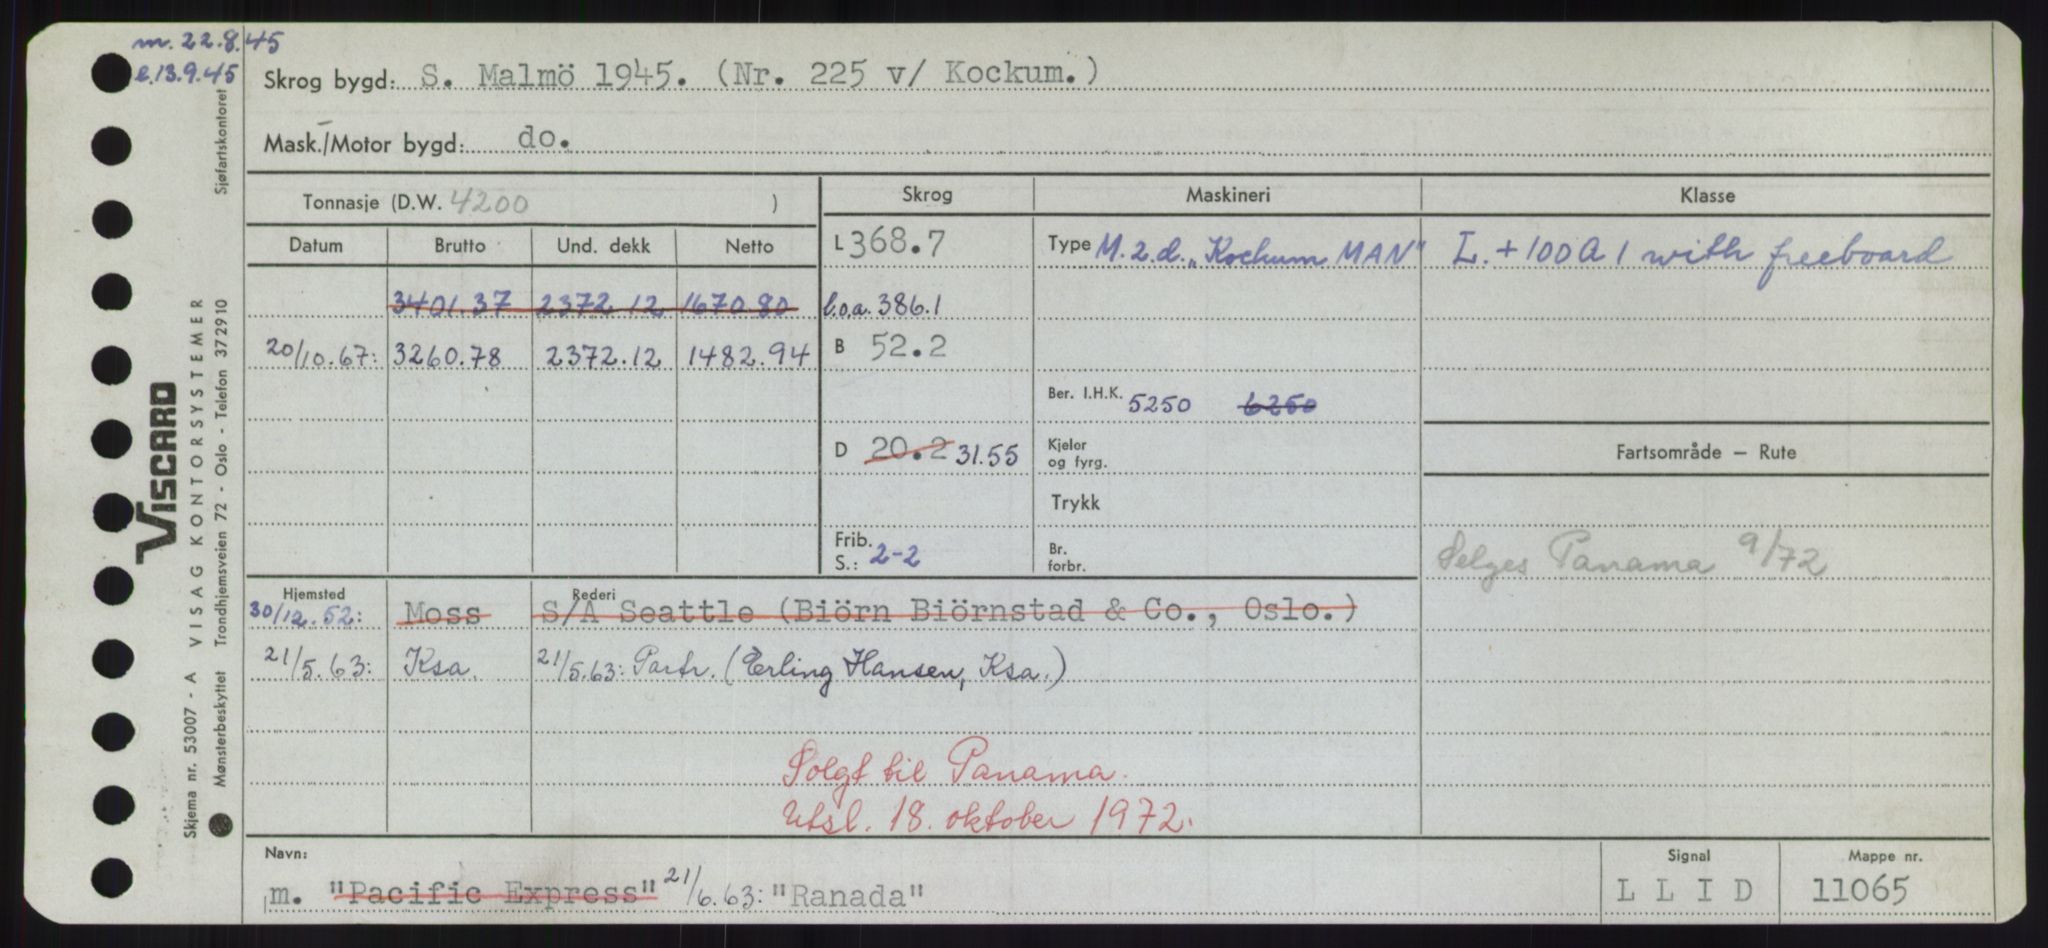 m. 22.8.45
l. 13.9.45
Skrog bygd: S. Malmö 1945. (Nr. 225 v/ Kockum.)
Mask./Motor bygd: do.
Tonnasje (D.W. 4200 )
Skrog
Maskineri
Klasse
Datum
Brutto
Und. dekk
Netto
L 368.7
Type M. 2.d. „Kockum MAN"
L. + 100 A 1 with freeboard
3401.37 2372.12 1670.80
l.o.a. 386.1
20/10.67: 3260.78 2372.12 1482.94
B 52.2
Ber. I.H.K. 5250 6250
D 20.2 31.55
Kjeler
og fyrg.
Fartsområde — Rute
Trykk
Frib.
S.: 2-2
Br.
forbr.
Selges Panama 9/72
Hjemsted
Rederi
30/12.52: Moss S/A Seattle (Biörn Biörnstad & Co., Oslo.)
21/5.63: Ksa. 21/5.63: Partr. (Erling Hansen, Ksa.)
Solgt til Panama.
Utsl. 18. oktober 1972.
Navn:
m. "Pacific Express" 21/6.63: "Ranada"
Signal
L L I D
Mappe nr.
11065
VISCARD
VISAG KONTORSYSTEMER
Skjema nr. 53007 - A
Mønsterbeskyttet Trondhjemsveien 72 - Oslo - Telefon 372910 Sjøfartskontoret